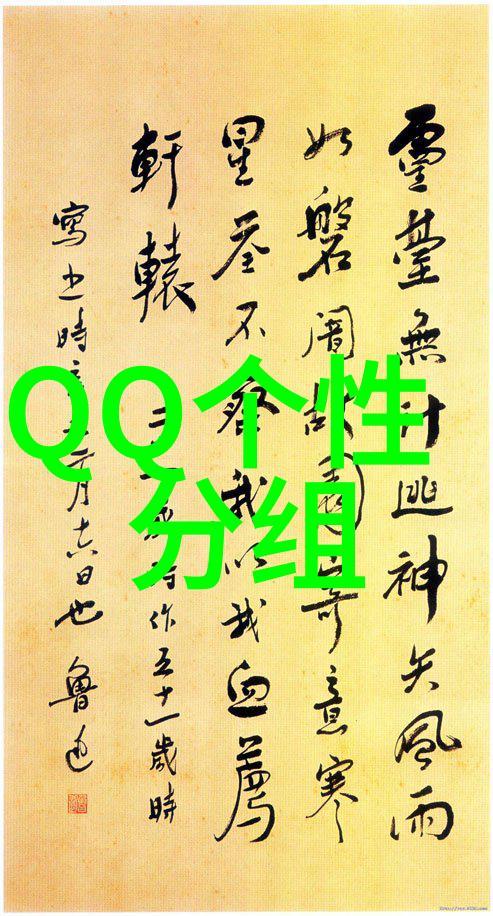 靈臺無計逃神矢風雨
如磐闇故園寄意寒
星荃不察我以我血薦
軒轅
二十一歲時作五十一歲時
寫之時辛未二月十六日也 魯迅
QQ个性
分组